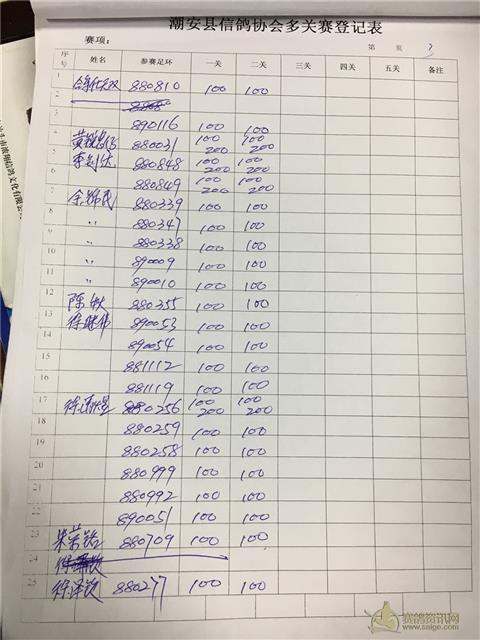 潮安县信鸽协会多关赛登记表
赛项: 第 页 3
序号 姓名 参赛足环 一关 二关 三关 四关 五关 备注
1 880810 100 100
2
3 890116 100 100
4 880031 100 200 100 200
5 880848 100 200 100 200
6 880849 100 200 100 200
7 余锦民 880339 100 100
8 〃 880347 100 100
9 〃 880338 100 100
10 〃 890009 100 100
11 〃 890010 100 100
12 陈 880355 100 100
13 890053 100 100
14 890054 100 100
15 881112 100 100
16 881119 100 100
17 880256 100 200 100 200
18 880259 100 100
19 880258 100 100
20 880999 100 100
21 880992 100 100
22 890051 100 100
23 朱荣 880709 100 100
24
25 徐泽 880277 100 100
赛鸽资讯网
www.saige.com